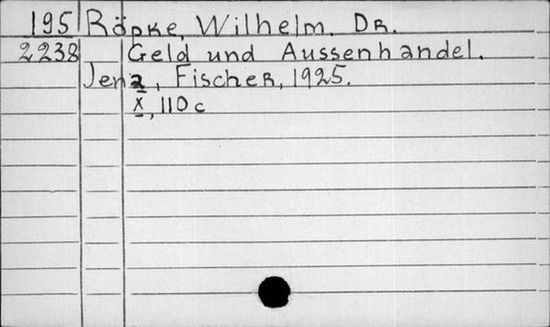 195 Röpke, Wilhelm. Dr.
2238 Geld und Aussenhandel.
Jena, Fischer, 1925.
x, 110 c